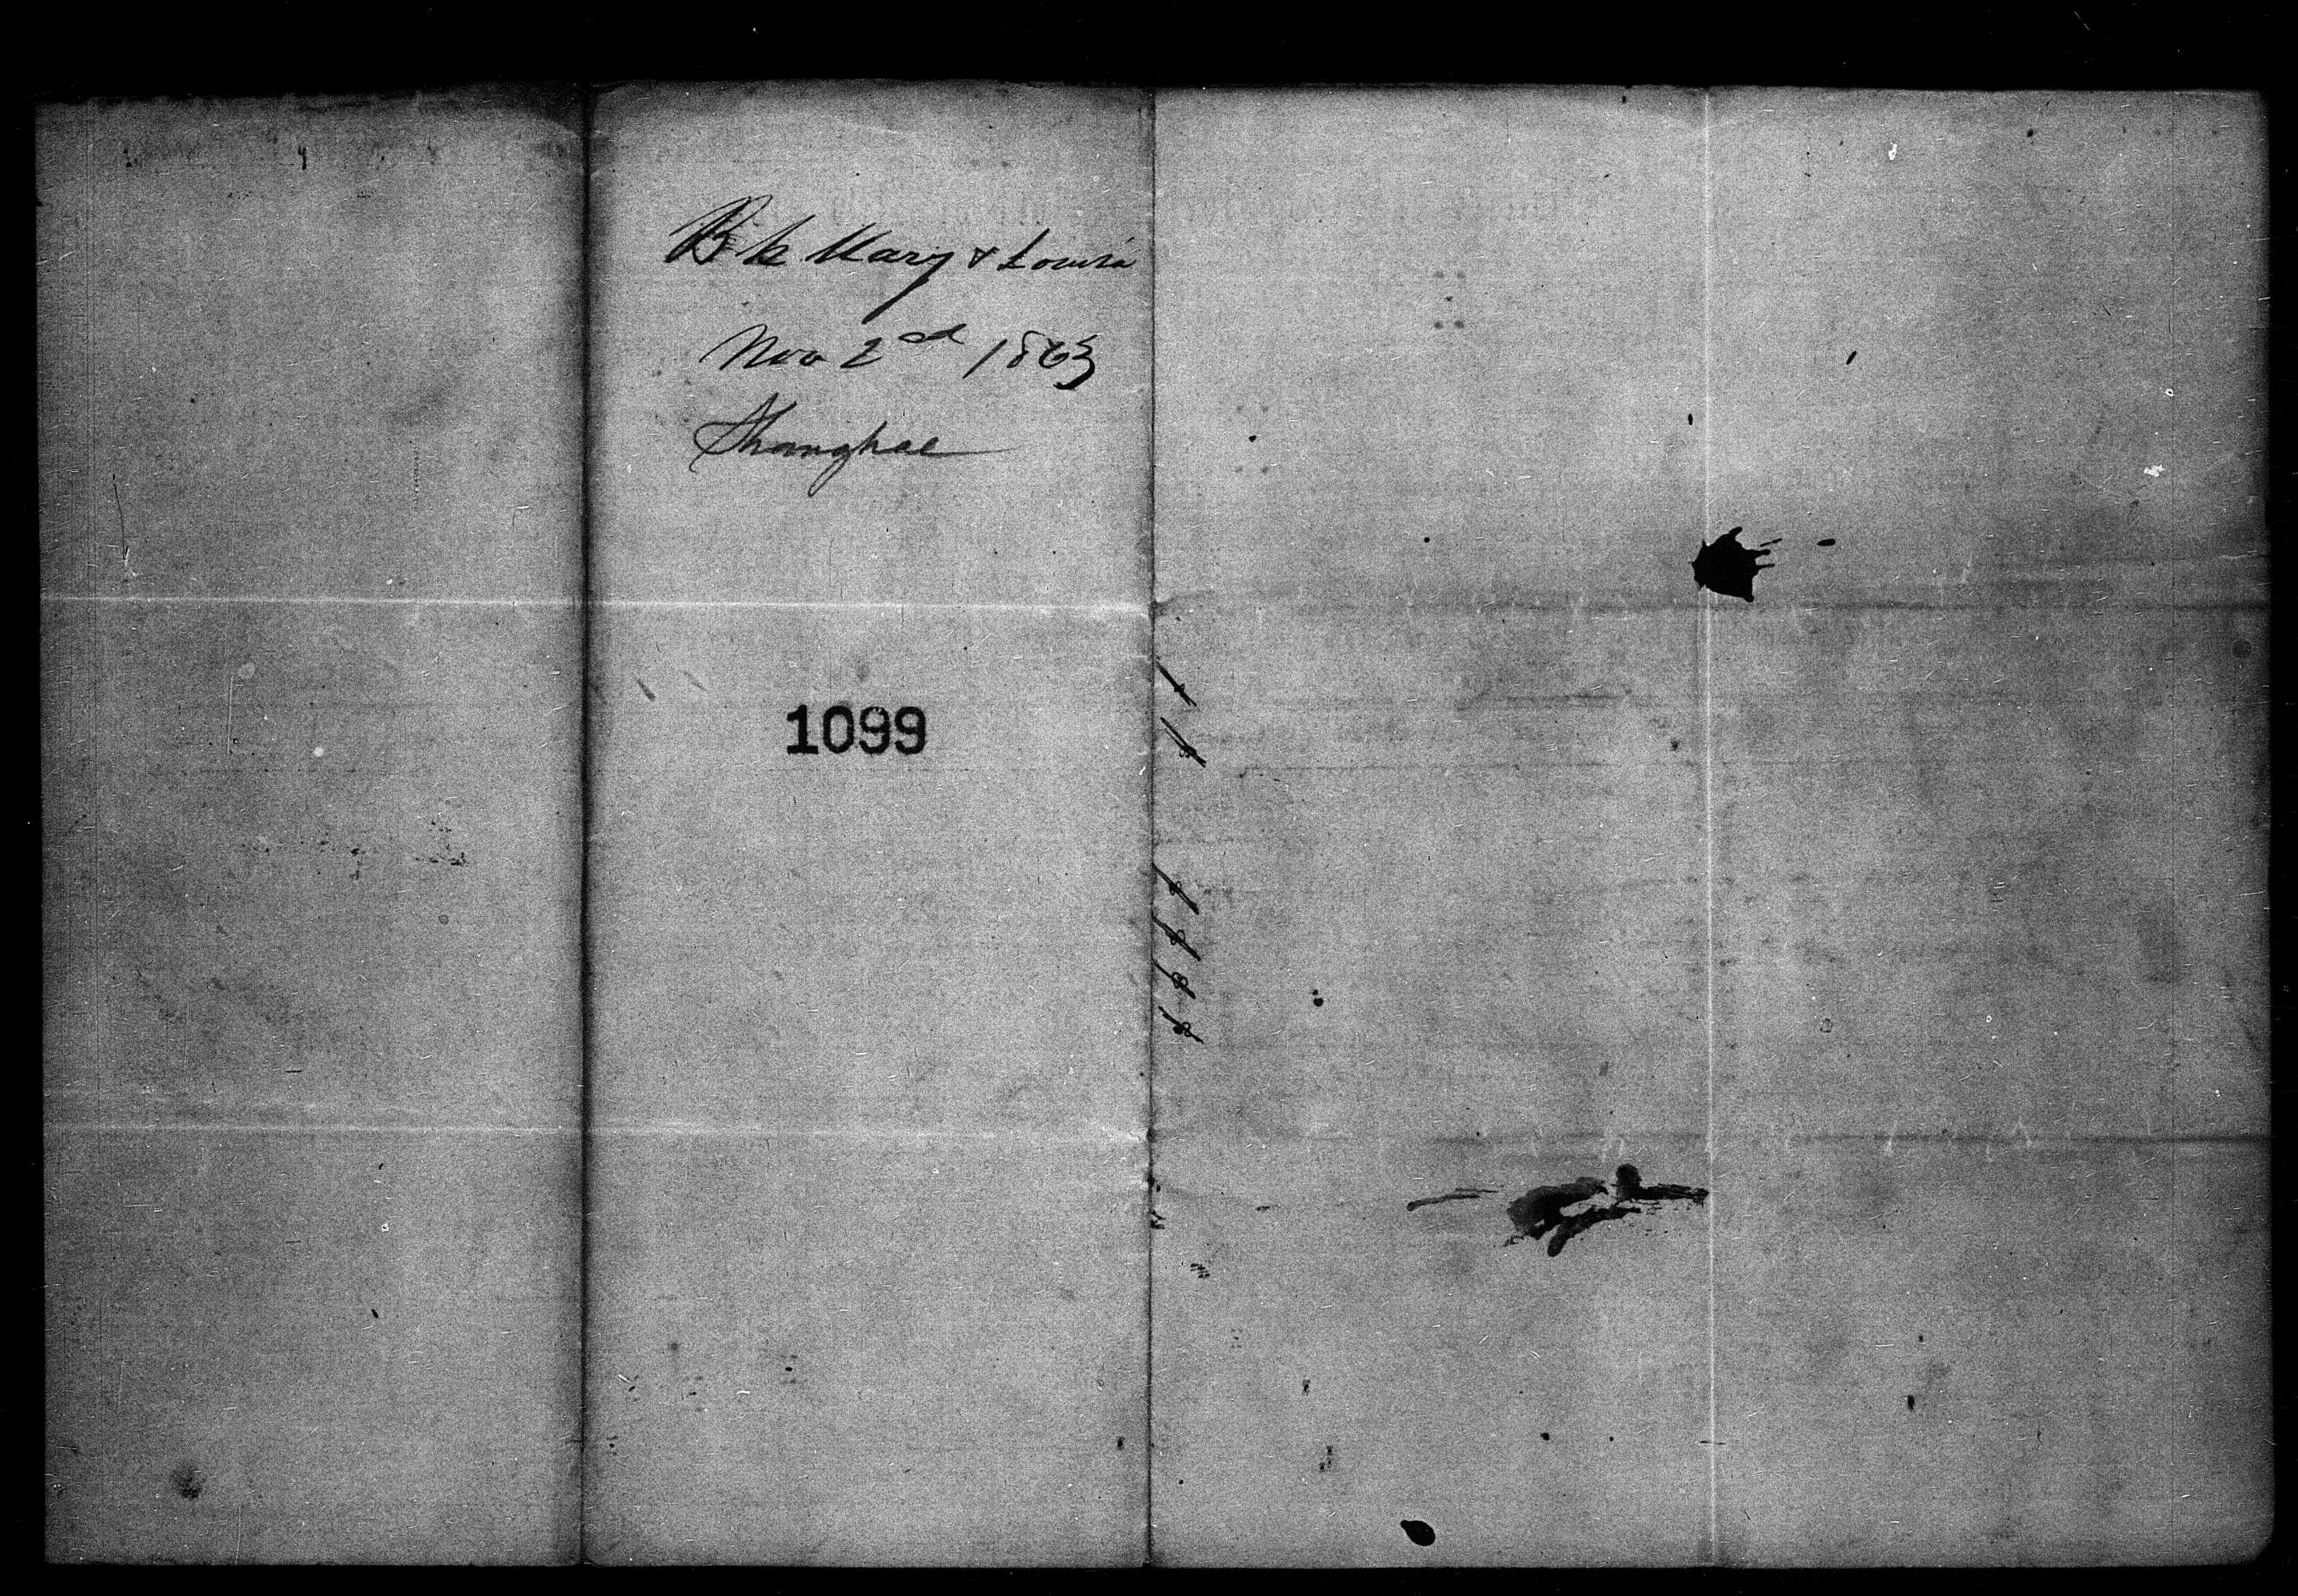 Bk Mary & Louisa
Nov 2nd 1863
Shanghae
1099